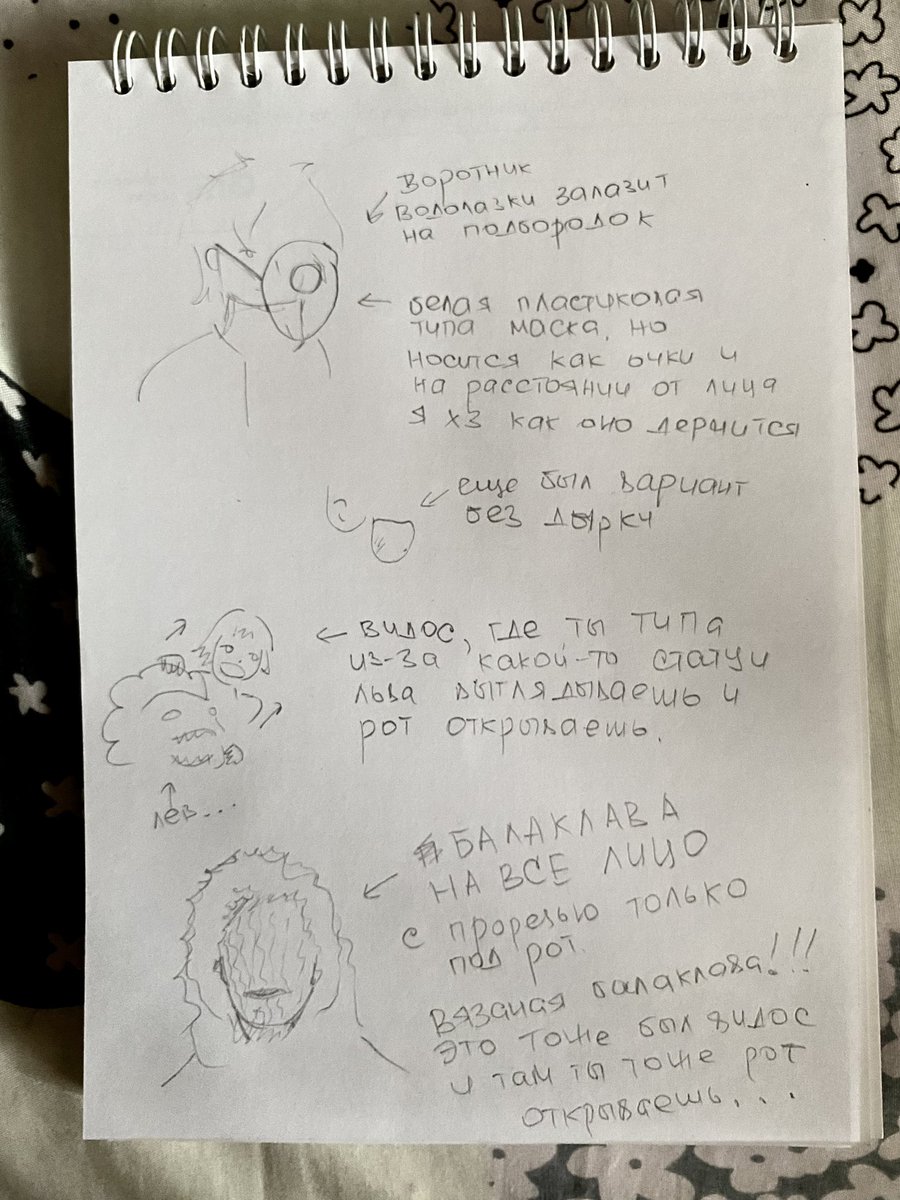 Воротник
водолазки залазит
на подбородок
белая пластиковая
типа маска, но
носится как очки и
на расстоянии от лица
я хз как оно держится
еще был вариант
без дырки
← видос, где ты типа
из-за какой-то статуи
льва выглядываешь и
рот открываешь.
лев...
БАЛАКЛАВА
НА ВСЕ ЛИЦО
с прорезью только
под рот.
Вязаная балаклава!!!
это тоже был видос
и там ты тоже рот
открываешь...